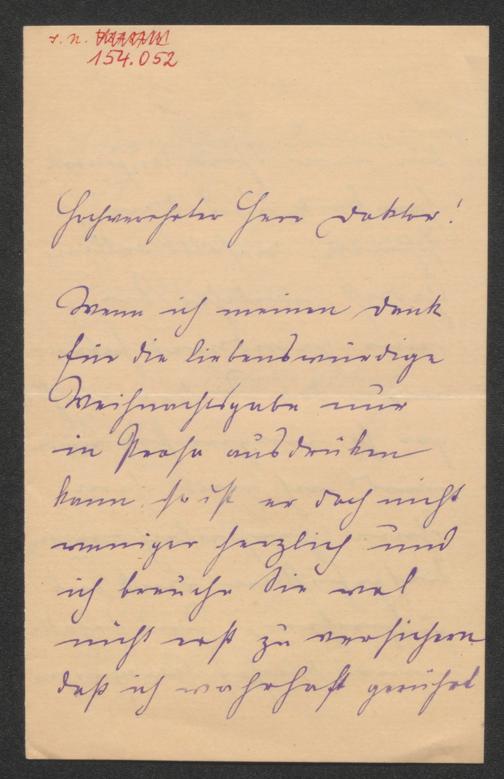 I. N.
154.052
Hochverehrter Herr Doktor!
Wenn ich meinen Dank
für die liebenswürdige
Weihnachtsgabe nur
in Prosa ausdrüken
kann, so ist er doch nicht
weniger herzlich und
ich brauche Sie wol
nicht erst zu versichern
daß ich wahrhaft gerührt